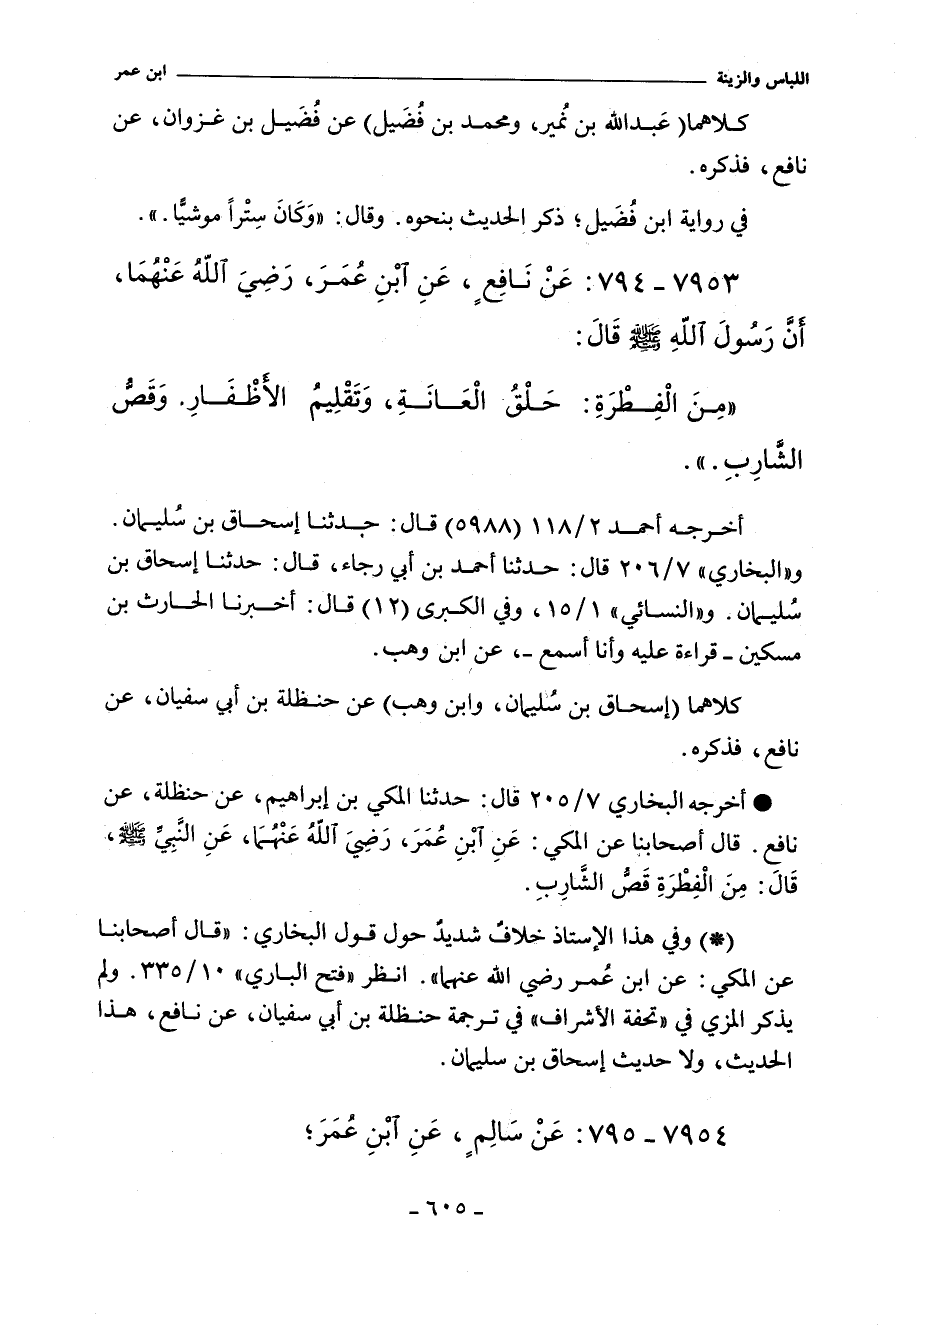 اللباس والزينة ــــــــــــ ابن عمر
كلاهما( عَبدالله بن نُمير، ومحمد بن فُضَيل) عن فُضَيل بن غزوان، عن
نافع، فذكره.
في رواية ابن فُضَيل؛ ذكر الحديث بنحوه. وقال: «وَكَانَ سِتْراً موشيًّا.».
٧٩٥٣ - ٧٩٤: عَنْ نَافِعٍ، عَنِ ٱبْنِ عُمَرَ، رَضِيَ ٱللّهُ عَنْهُمَا،
أَنَّ رَسُولَ ٱللّهِ ﷺ قَالَ:
«مِنَ الْفِطْرَةِ: حَلْقُ الْعَانَةِ، وَتَقْلِيمُ الأَظْفَارِ. وَقَصُّ
الشَّارِبِ.».
أخرجه أحمد ١١٨/٢ (٥٩٨٨) قال: حدثنا إسحاق بن سُليمان.
و«البخاري» ٢٠٦/٧ قال: حدثنا أحمد بن أبي رجاء، قال: حدثنا إسحاق بن
سُليمان. و«النسائي» ١٥/١، وفي الكبرى (١٢) قال: أخبرنا الحارث بن
مسكين - قراءة عليه وأنا أسمع -، عن ابن وهب.
كلاهما (إسحاق بن سُليمان، وابن وهب) عن حنظلة بن أبي سفيان، عن
نافع، فذكره.
● أخرجه البخاري ٢٠٥/٧ قال: حدثنا المكي بن إبراهيم، عن حنظلة، عن
نافع. قال أصحابنا عن المكي: عَنِ ٱبْنِ عُمَرَ، رَضِيَ ٱللّهُ عَنْهُمَا، عَنِ النَّبِيِّ ﷺ،
قَالَ: مِنَ الْفِطْرَةِ قَصُّ الشَّارِبِ.
(*) وفي هذا الإستاذ خلافٌ شديدٌ حول قول البخاري: «قال أصحابنا
عن المكي: عن ابن عُمر رضي الله عنهما». انظر «فتح الباري» ٣٣٥/١٠. ولم
يذكر المزي في «تحفة الأشراف» في ترجمة حنظلة بن أبي سفيان، عن نافع، هذا
الحديث، ولا حديث إسحاق بن سليمان.
٧٩٥٤ - ٧٩٥: عَنْ سَالِمٍ، عَنِ ٱبْنِ عُمَرَ؛
- ٦٠٥ -